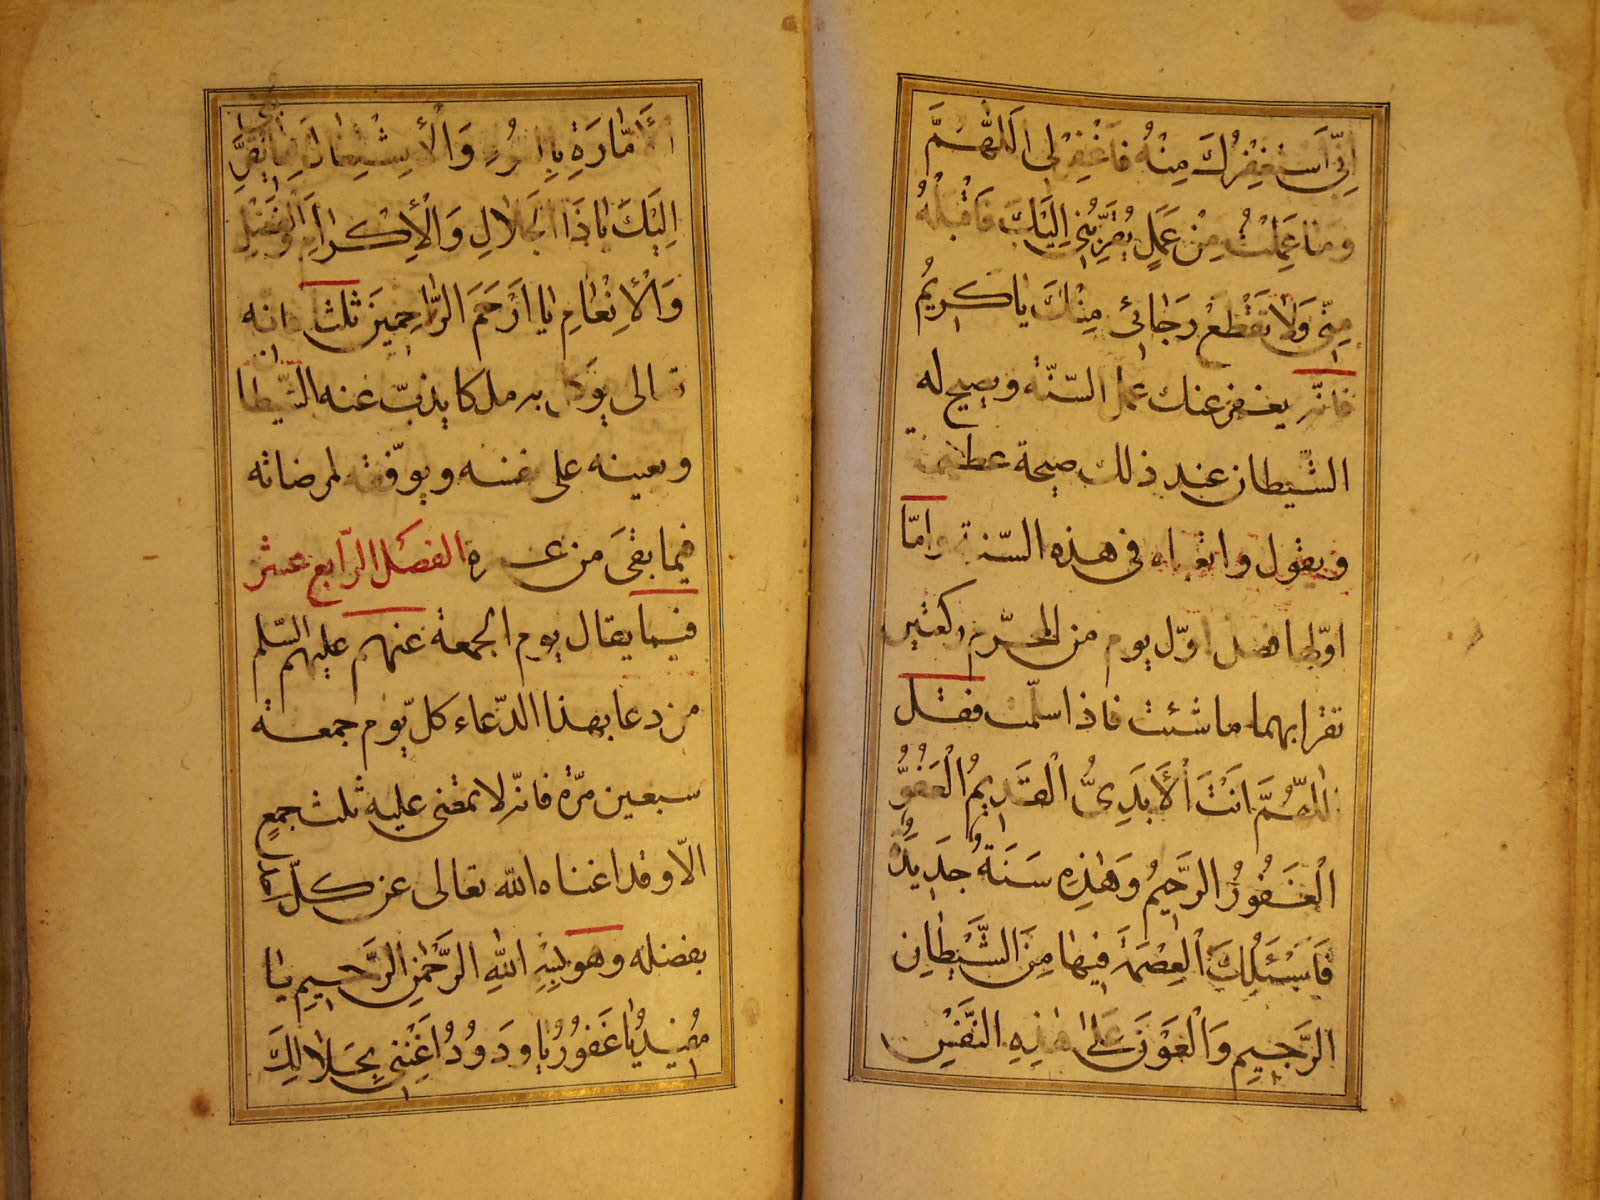 اِنِّي اَسْتَغْفِرُكَ مِنْهُ فَاغْفِرْلِى اَللّٰهُمَّ
وَمٰا عَمِلْتُ مِنْ عَمَلٍ يُقَرِّبُنِى اِلَيْكَ فَاقْبَلْهُ
مِنّى وَلٰا تَقْطَعْ رَجٰائى مِنْكَ يٰا كَرِيمُ
فانّه يغفر عنك عمل السّنّة ويصيح له
الشّيطان عند ذلك صيحة عظيمة
ويقول واتعباه فى هذه السّنة وامّا
اوّلها فصل اوّل يوم من المحرّم ركعتين
تقرا بهما ما شئت فاذا سلّمت فقل
اَللّٰهُمَّ اَنْتَ اْلاَبَدِىُّ الْقَدِيمُ الْغَفُورُ
الْغَفُورُ الرَّحِيمُ وَهٰذِهِ سَنَةٌ جَدِيدَةٌ
فَاَسْئَلُكَ الْعِصْمَةَ فِيهٰا مِنَ الشَّيْطٰانِ
الرَّجِيمِ وَالْعَوْنَ عَلىٰ هٰذِهِ النَّفْسِ
اْلاَمّٰارَةِ بِالسُّوءِ وَاْلاِشْتِغٰالَ بِمٰا يُقَرِّبُنِى
اِلَيْكَ يٰا ذَا الْجَلٰالِ وَاْلاِكْرٰامِ وَالْفَضْلِ
وَاْلاِنْعٰامِ يٰا اَرْحَمَ الرّٰاحِمِينَ ثلثا فانه
تعالى يوَكّل به ملكا يذبّ عنه الشّيطان
ويعينه على نفسه ويوفّقه لمرضاته
فيما بقىَ من عمره الفصل الرّابع عشر
فيما يقال يوم الجمعة عنهم عليهم السّلم
من دعا بهذا الدّعاء كلّ يوم جمعة
سبعين مرّة فانّه لا تمضى عليه ثلث جمعٍ
الّا وقد اغناه الله تعالى عن كلّ
بفضله وهو بِسْمِ اللهِ الرَّحْمٰنِ الرَّحِيمِ يٰا
مُفِيدُ يٰا غَفُورُ يٰا وَدُودُ اَغْنِنى بِحَلٰالِكَ